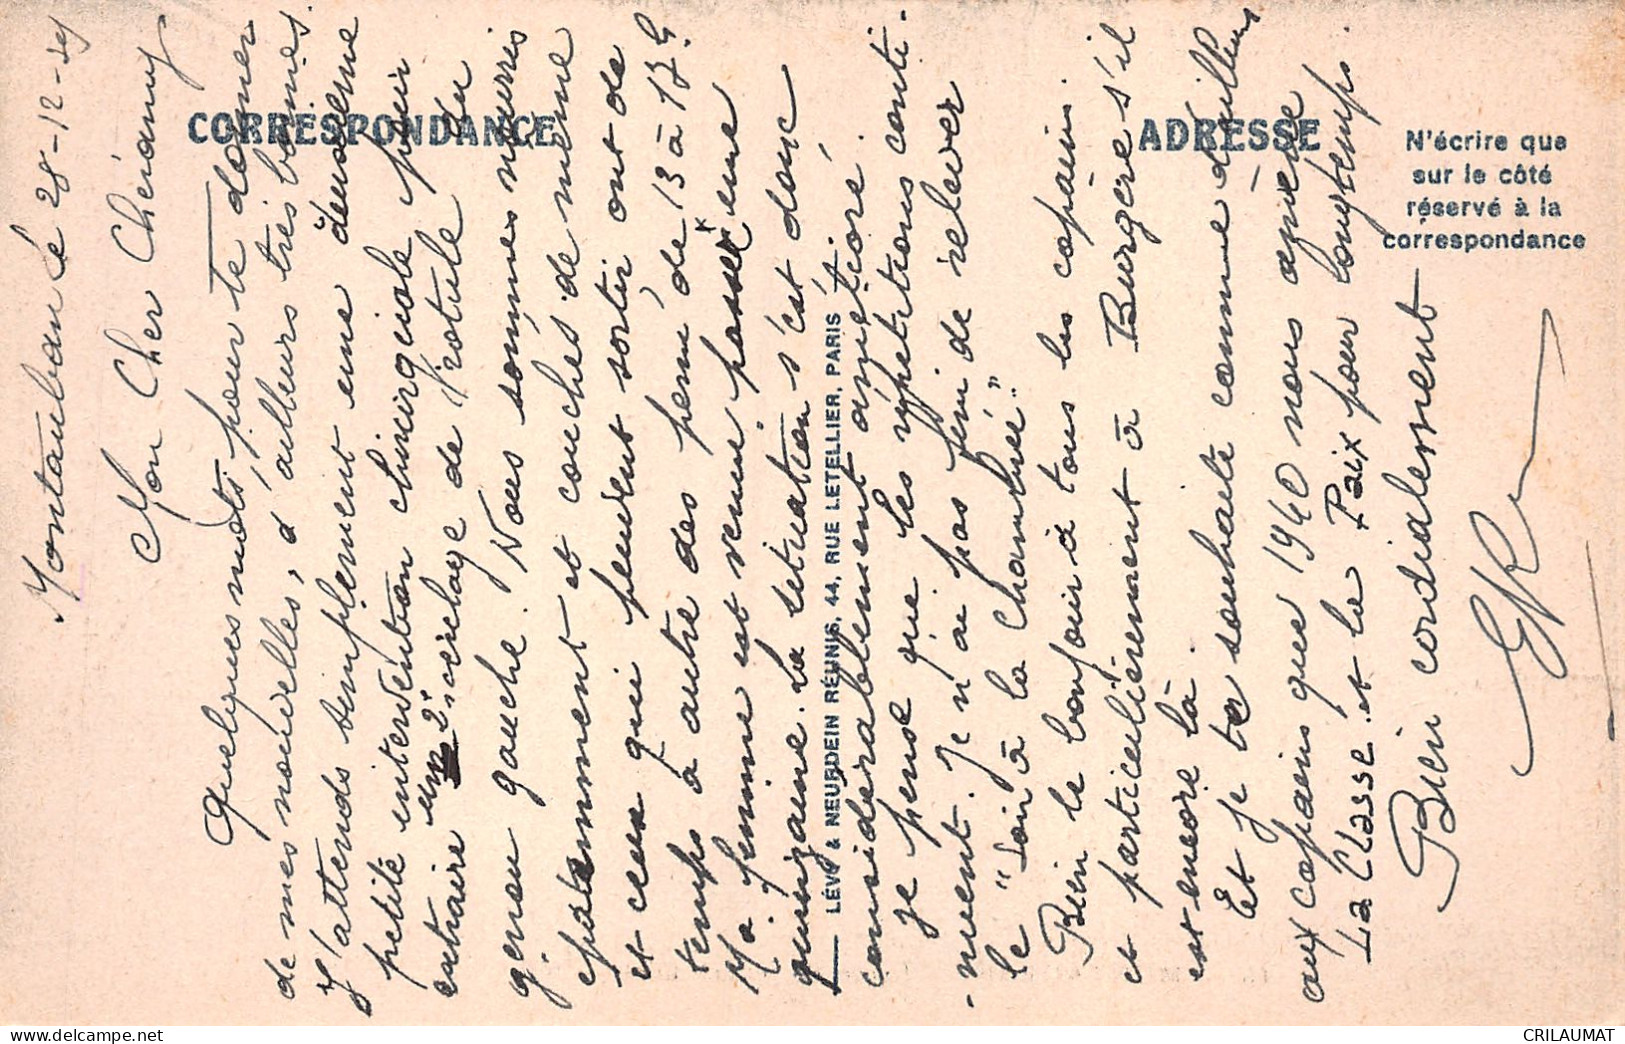 Montauban le 28-12-39
Mon Cher Chénamy
Quelques mots, pour te donner
de mes nouvelles, d'ailleurs très bonnes.
J'attends simplement une deuxième
petite intervention chirurgicale pour
extraire un 2° cerclage de rotule du
genou gauche. Nous sommes nourris
épatamment et couchés de même
et ceux qui peuvent sortir ont de
temps à autre des perm, de 13 à 17 h.
Ma femme est venue passer une
quinzaine. La situation s'est donc
considérablement améliorée.
Je pense que les répétitions conti-
-nuent. Je n'ai pas fini de relever
le "Loin à la Chambrée".
Bien le bonjour à tous les copains
et particulièrement à Burgère s'il
est encore là.
Et je te souhaite comme d'ailleurs
aux copains que 1940 nous amène
La Classe et la Paix pour longtemps.
Bien cordialement
CORRESPONDANCE
ADRESSE
N'écrire que
sur le côté
réservé à la
correspondance
LÉVY & NEURDEIN RÉUNIS, 44, RUE LETELLIER, PARIS
CRILAUMAT